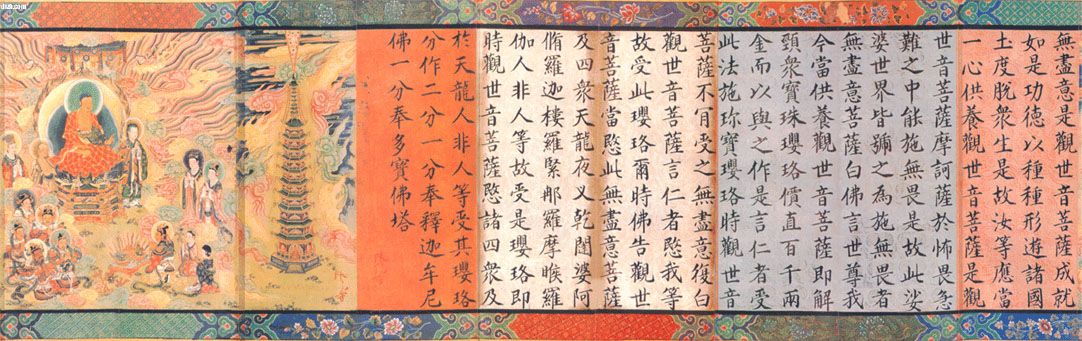 無盡意是觀世音菩薩成就
如是功德以種種形遊諸國
土度脫衆生是故汝等應當
一心供養觀世音菩薩是觀
世音菩薩摩訶薩於怖畏急
難之中能施無畏是故此娑
婆世界皆號之為施無畏者
無盡意菩薩白佛言世尊我
今當供養觀世音菩薩即解
頸衆寶珠瓔珞價直百千兩
金而以與之作是言仁者受
此法施珎寶瓔珞時觀世音
菩薩不肯受之無盡意復白
觀世音菩薩言仁者愍我等
故受此瓔珞爾時佛告觀世
音菩薩當愍此無盡意菩薩
及四衆天龍夜叉乾闥婆阿
脩羅迦樓羅緊那羅摩睺羅
伽人非人等故受是瓔珞即
時觀世音菩薩愍諸四衆及
於天龍人非人等受其瓔珞
分作二分一分奉釋迦牟尼
佛一分奉多寶佛塔